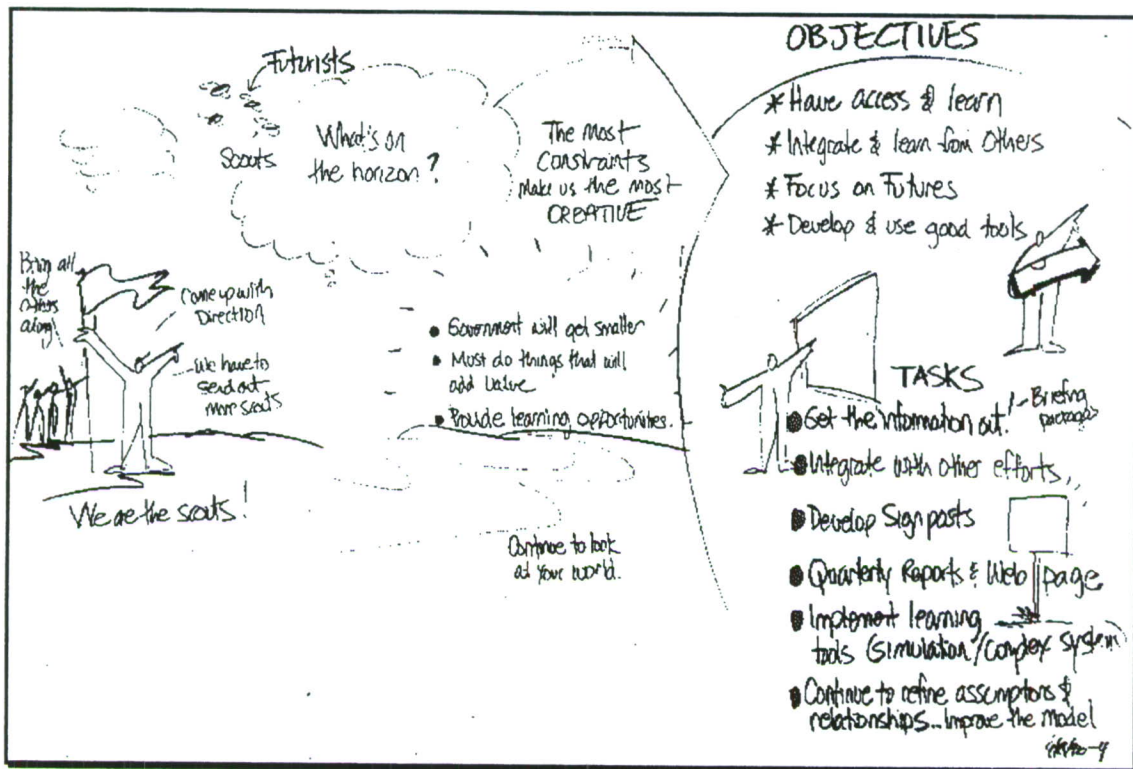 Futurists
Scouts
What's on
the horizon?
The most
constraints
make us the most
CREATIVE
Bring all
the
others
along!
Come up with
Direction
We have to
send out
more scouts
We are the scouts!
• Government will get smaller
• Must do things that will
add value
• Provide learning opportunities.
Continue to look
at your world.
OBJECTIVES
* Have access & learn
* Integrate & learn from Others
* Focus on Futures
* Develop & use good tools
TASKS
• Get the information out!
- Briefing
packages
• Integrate with other efforts
• Develop Signposts
• Quarterly Reports & Web page
• Implement learning
tools (simulation/complex system)
• Continue to refine assumptions &
relationships... Improve the model